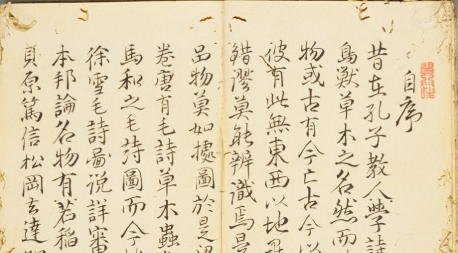 自序
昔在孔子教人學詩
鳥獸草木之名然而
物或古有今亡古今
彼有此無東西以地
錯謬莫能辨識焉是
品物莫如據圖於是
卷唐有毛詩草木蟲
馬和之毛詩圖而今
徐雪毛詩啚说詳審
本邦論名物有若稻
貝原篤信松岡玄達